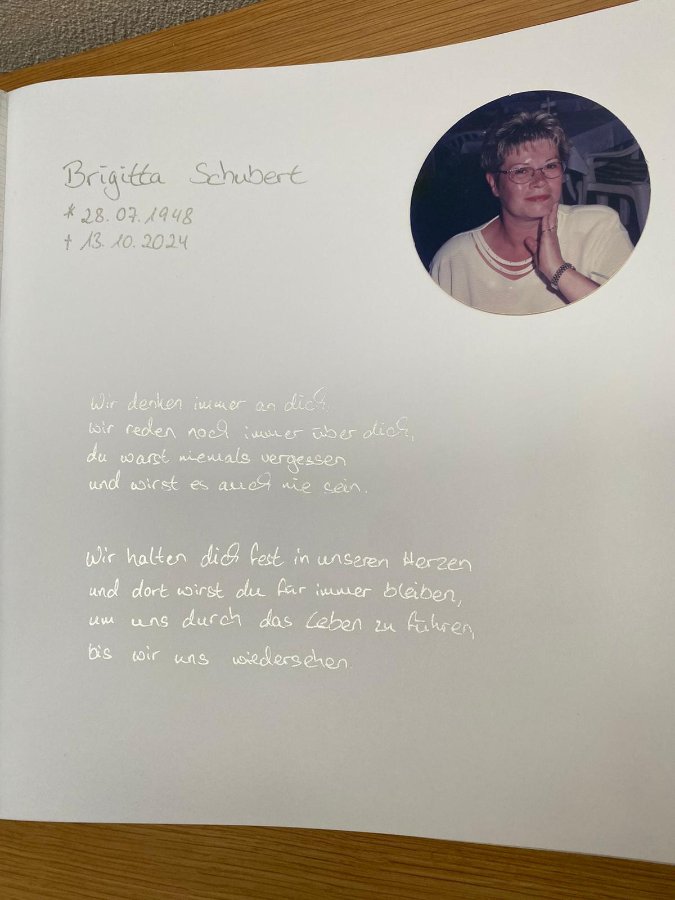 Brigitta Schubert
* 28.07.1948
† 13.10.2024
Wir denken immer an dich.
Wir reden noch immer über dich,
du warst niemals vergessen
und wirst es auch nie sein.
Wir halten dich fest in unseren Herzen
und dort wirst du für immer bleiben,
um uns durch das Leben zu führen,
bis wir uns wiedersehen.